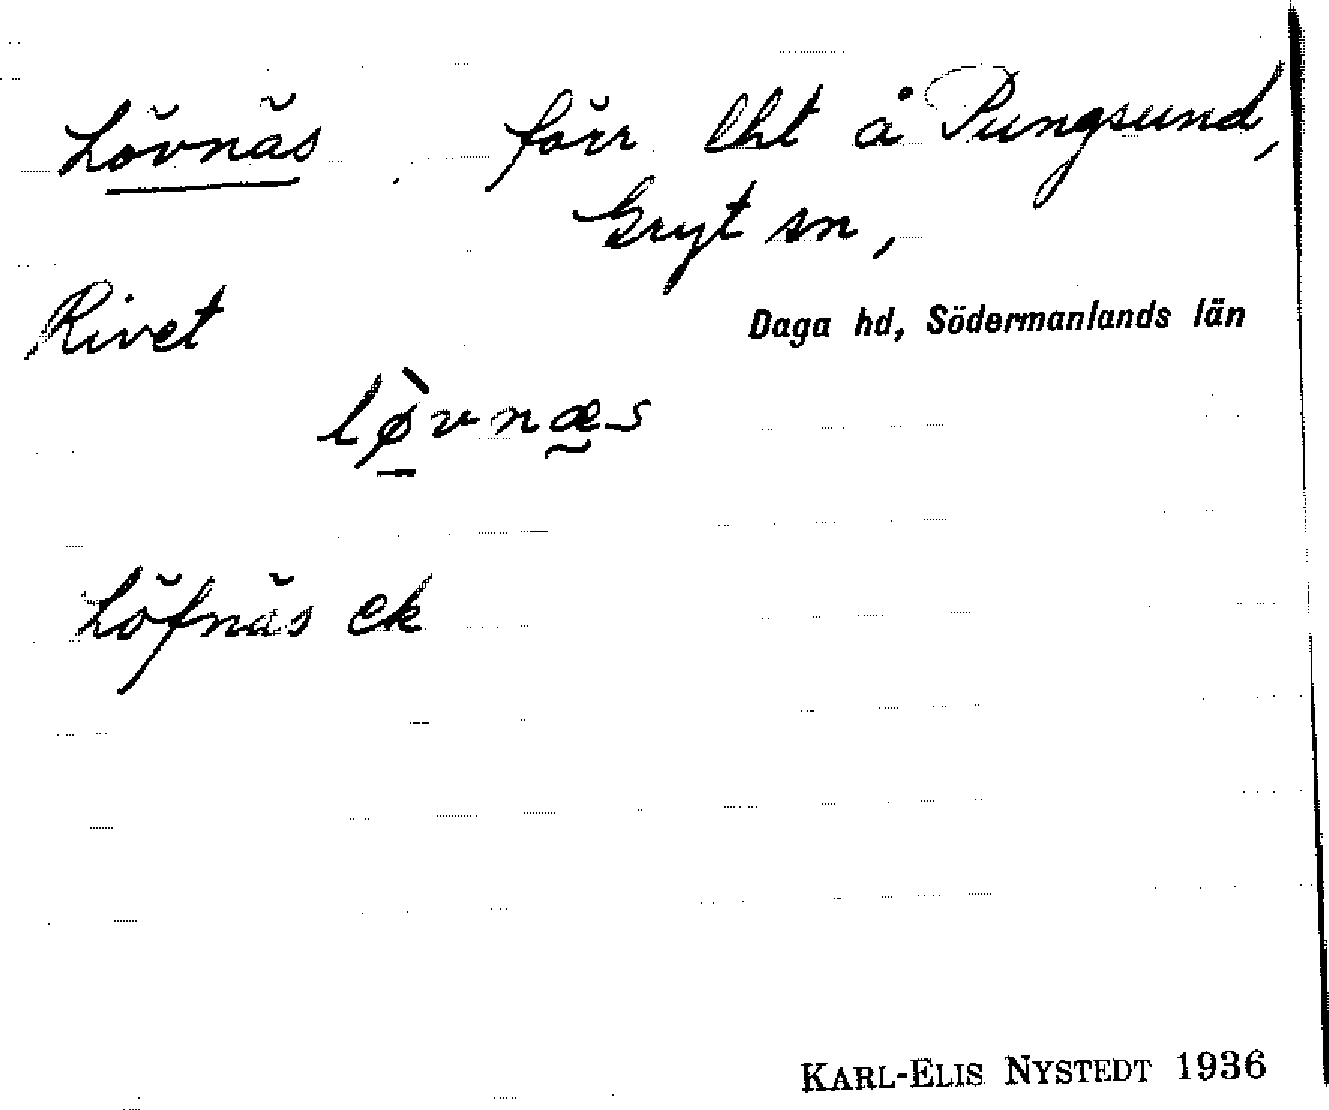 Lövnäs förr lht å Pungsund,
Gryt sn,
Rivet
Daga hd, Södermanlands län
lø̀vnæs
Löfnäs ek
KARL-ELIS NYSTEDT 1936